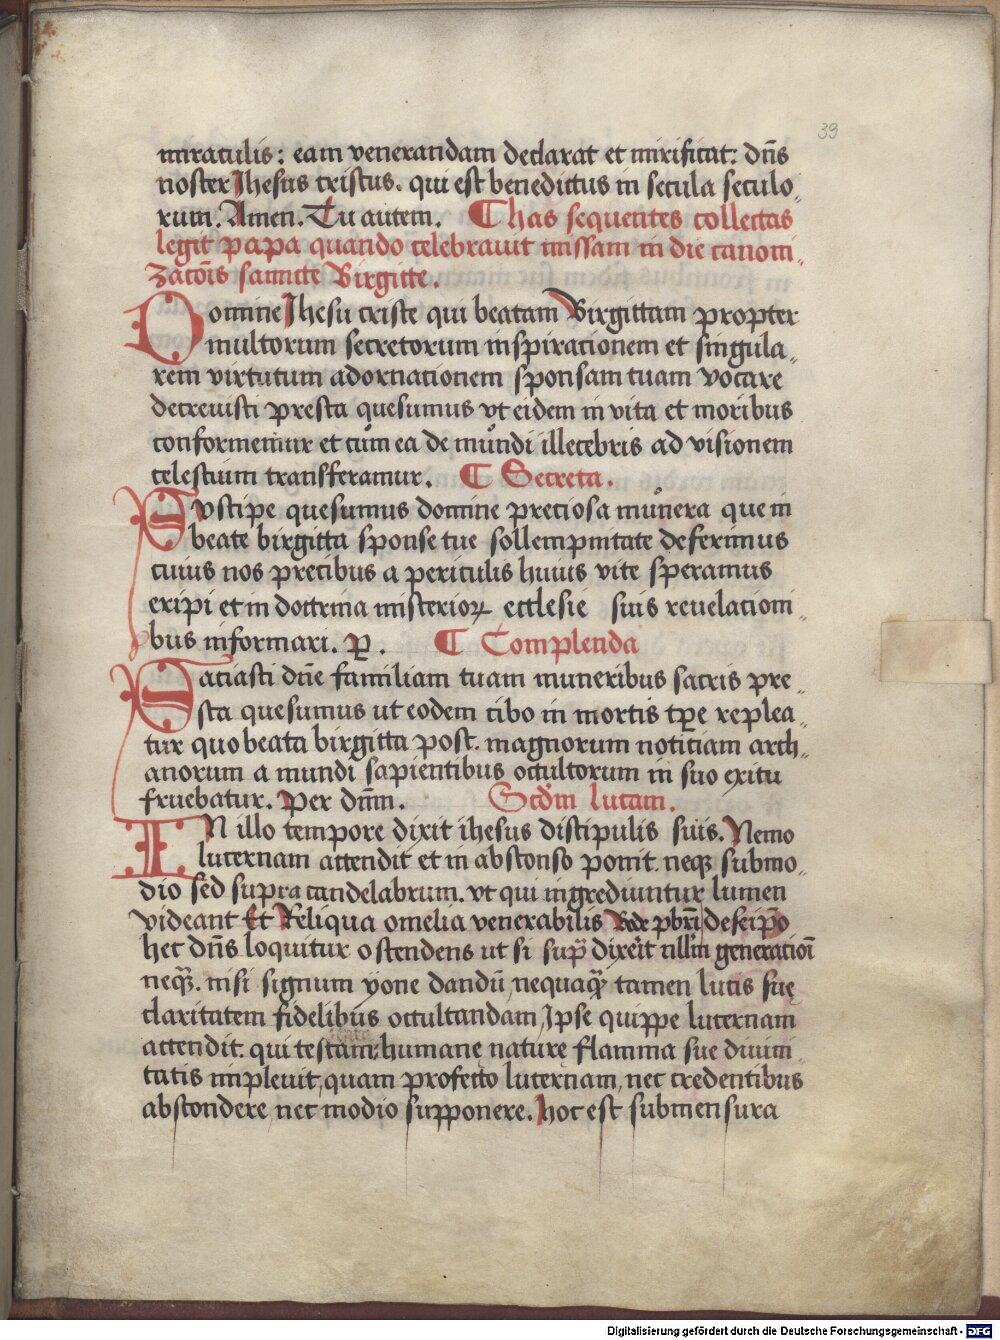 39
miraculis: eam venerandam declarat et mirificat: dñs
noster Jhesus cristus. qui est benedictus in secula seculo„
rum. Amen. Tu autem. ¶ has sequentes collectas
legit papa quando celebrauit missam in die canoni„
zacōis sancte Birgitte.
Domine Jhesu criste qui beatam Birgittam propter
multorum secretorum inspiracionem et singula„
rem virtutum adornacionem sponsam tuam vocare
decreuisti presta quesumus vt eidem in vita et moribus
conformemur et cum ea de mundi illecebris ad visionem
celestium transferamur. ¶ Secreta.
Svscipe quesumus domine preciosa munera que in
beate birgitta sponse tue sollempnitate deferimus
cuius nos precibus a periculis huius vite speramus
eripi et in doctrina misterioꝝ ecclesie suis reuelacioni„
bus informari. P̲. ¶ Complenda
Saciasti dn̄e familiam tuam muneribus sacris pre„
sta quesumus ut eodem cibo in mortis tp̄e replea„
tur quo beata birgitta post. magnorum noticiam arch„
anorum a mundi sapientibus occultorum in suo exitu
fruebatur. Per dn̄m. Scd̄m lucam.
IN illo tempore dixit ihesus discipulis suis. Nemo
lucernam accendit et in absconso ponit. neqꝫ sub mo„
dio sed supra candelabrum. vt qui ingrediuntur lumen
videant Et Reliqua omelia venerabilis Bede pb̄ri de seip̄o
hec dñs loquitur ostendens ut si sup̄ dixerit nllm̄ generacioī
neqꝫ. nisi signum yone dandū, nequaqꝫ tamen lucis suę
claritatem fidelibus occultandam, Ipse quippe lucernam
accendit. qui testam humanę naturę flamma sue diuini„
tatis impleuit, quam profecto lucernam, nec credentibus
abscondere, nec modio supponere. hoc est sub mensura
Digitalisierung gefördert durch die Deutsche Forschungsgemeinschaft - DFG